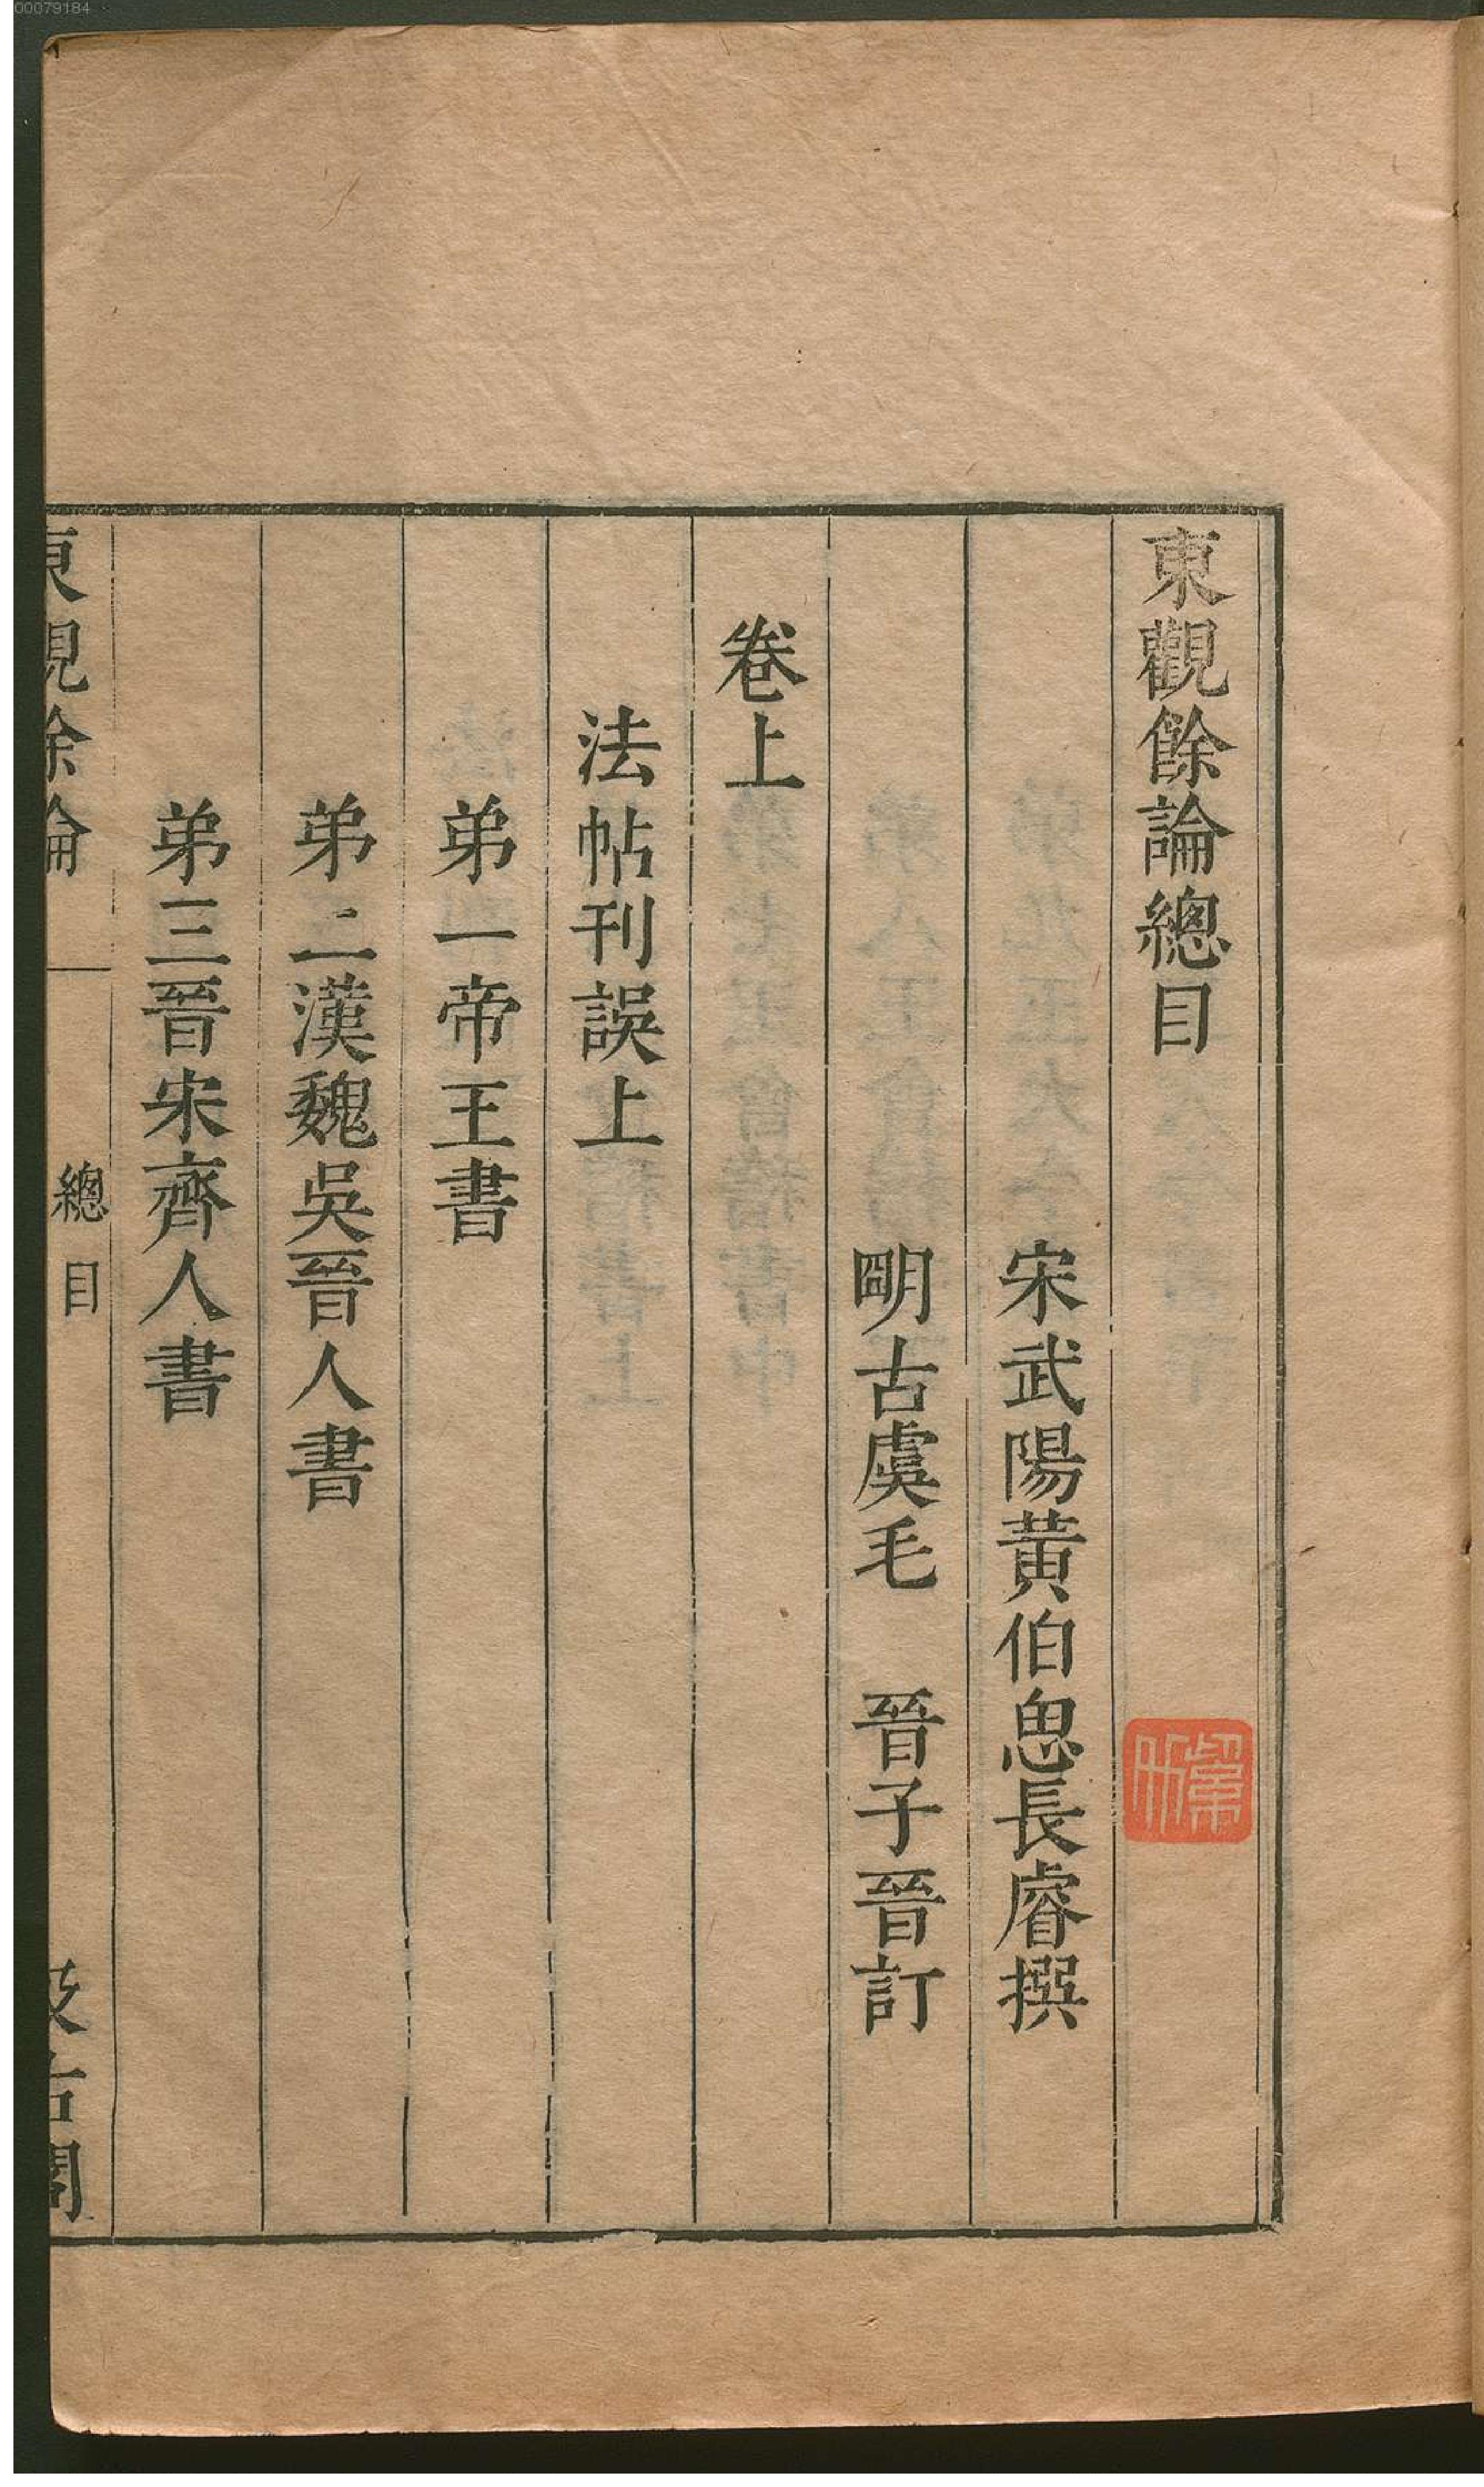 00079184
東觀餘論總目
宋武陽黃伯思長睿撰
明古虞毛　晉子晉訂
卷上
法帖刊誤上
弟一帝王書
弟二漢魏吳晉人書
弟三晉宋齊人書
東觀餘論　總目　汲古閣